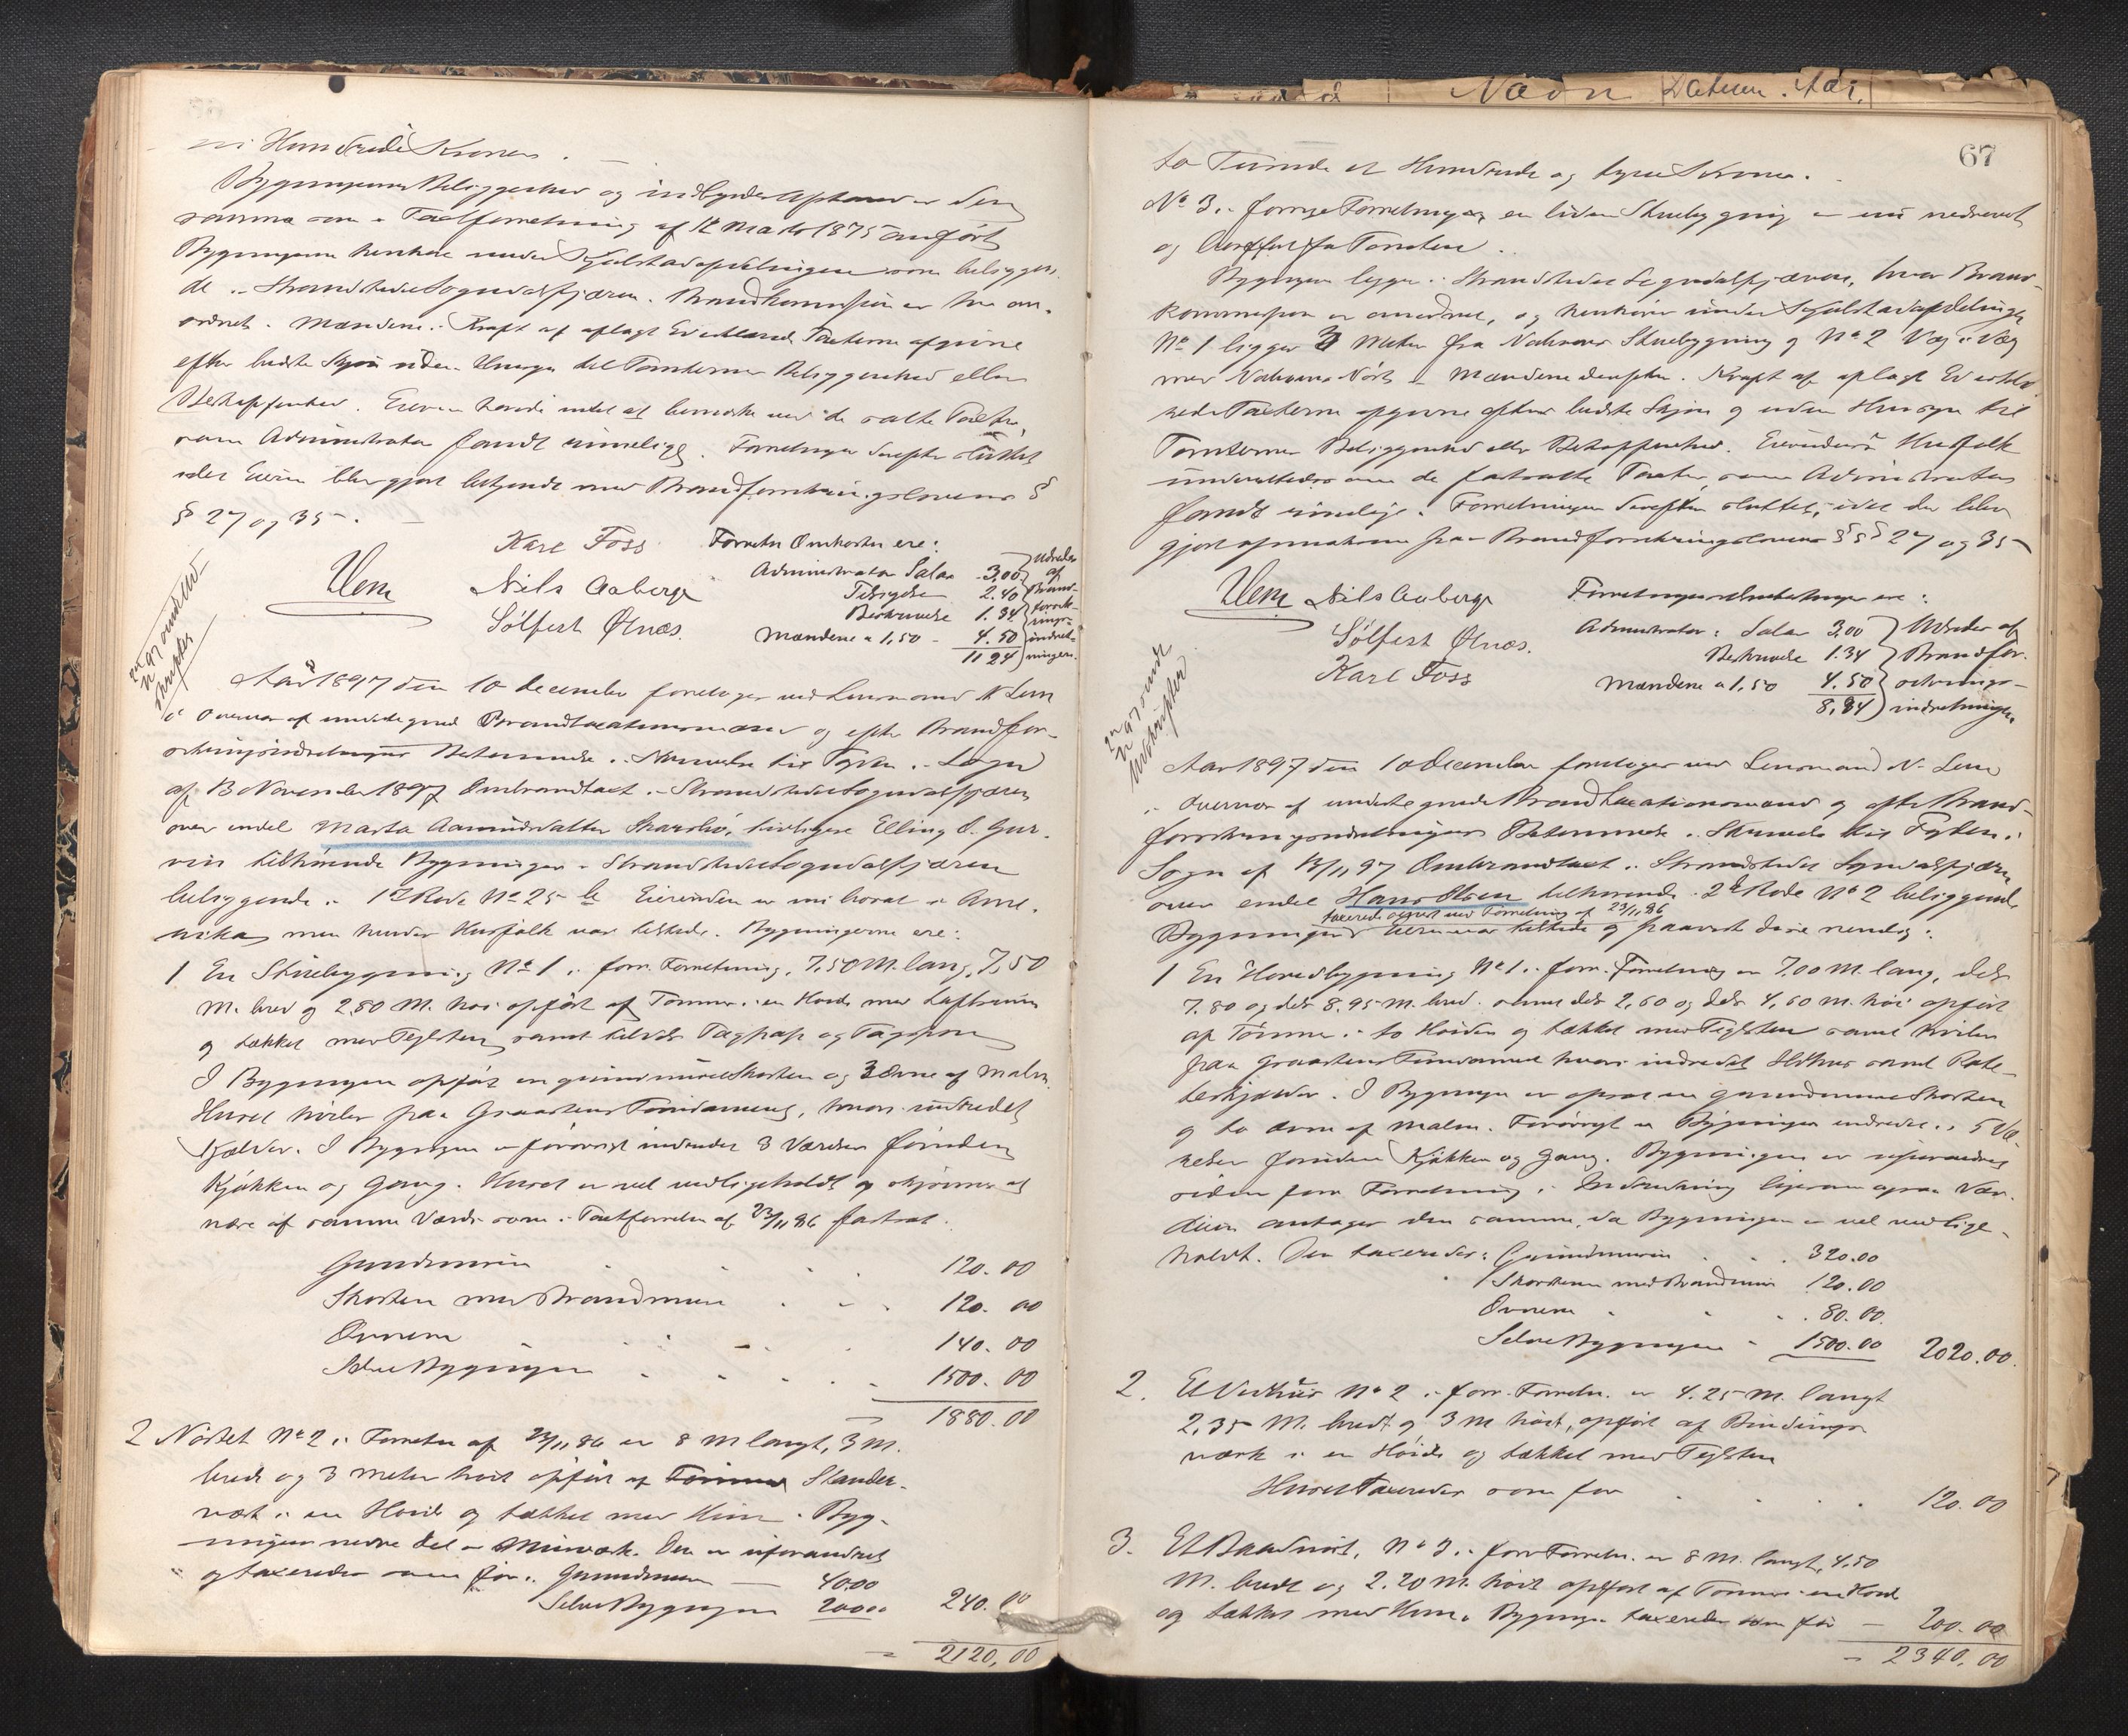 ni Hundrede Kroner. —
Bygningernes Beliggenhed og indbyrdes Afstand er den
samme som i Taxtforretning af 12 Marts 1875 anført
Bygningerne henhøre under Kjøbstadafdelingen som beliggen-
de i Strandstedet Sogndalsfjæren. Brandkommission er her an-
ordnet. Mændene i Kraft af aflagt Ed erklærede Taxterne afgivne
efter bedste Skjøn uden Hensyn til Tomternes Beliggenhed eller
Beskaffenhed. Eieren havde intet at bemærke ved de satte Taxter,
som Administrator fandt rimelige. Forretningen derefter sluttet
idet Eieren blev gjort bekjendt med Brandforsikringslovens §
§ 27 og 35. —
Lem
Karl Foss
Nils Aaberge
Sølfest Ølnæs.
Forretn Omkostn ere:
Administrator Salær 3,00
Tilsigelse 2.40
Beskrivelse 1.34
Mændene a 1,50 - 4.50
11 24
Udredes
af
Brand-
forsik-
rings-
indret-
ningen.
Aar 1897 den 10 december foretoges ved Lensmand N Lem
i Overvær af undertegnede Brandtaxationsmænd og efter Brandfor-
sikringsindretningens Bestemmelse i Skrivelse til Fogden i Sogn
af 13 November 1897 Ombrandtaxt i Strandstedet Sogndalsfjæren
over endel Marta Aamundsdatter Skarsbø, tidligere Elling O. Gur-
vin tilhørende Bygninger i Strandstedet Sogndalsfjæren
beliggende i 1st Rode No 25 b Eierinden er nu bosat i Ame-
rika, men hendes Husfolk var tilstede. Bygningerne ere:
1 En Stuebygning No 1 i forr. Forretning, 7,50 M. lang, 7,50
M. bred og 2,80 M. høi opført af Tømmer i en Høide med Loftsrum
og tækket med Teglsten samt tildels Tagpap og Tagspon
I Bygningen opført en grundmuret Skorsten og 3 Ovne af malm.
Huset hviler paa Graastens Fundament, hvori indredet
Kjælder. I Bygningen er forøvrigt indredet 3 Værelser foruden
Kjøkken og Gang. Huset er vel vedligeholdt og skjønnes at
være af samme Værdi som i Taxtforretn af 23/11 86 fastsat.
Grundmuren 120. 00
Skorsten med Brandmur 120. 00
Ovnene 140. 00
Selve Bygningen 1500. 00
1880. 00
2 Nøstet No 2 i Forretn af 23/11 86 er 8 M langt, 3 M.
bredt og 3 meter høit opført af Tømmer Stander-
værk i en Høide og tækket med Heller. Byg-
ningens nedre del er Murværk. Den er uforandret
og taxeredes som før: Grundmur — 40.00
Selve Bygningen 200.00 240. 00
2120, 00
67
to Tusinde et Hundrede og tyve Kroner.
No 3 i forrige Forretning en liden Stuebygning er nu nedrevet
og bortført fra Tomten.
Bygningen ligger i Strandstedet Sogndalsfjæren, hvor Brand-
kommission er anordnet, og henhører under Kjøbstadafdelingen
No 1 ligger 3 Meter fra Naboens Stuebygning og No 2 Væg i Væg
med Naboens Nøst. Mændene derefter i Kraft af aflagt Ed erklæ-
rede Taxterne afgivne efter bedste Skjøn og uden Hensyn til
Tomternes Beliggenhed eller Beskaffenhed. Eierindens Husfolk
underrettedes om de fastsatte Taxter, som Administrator
fandt rimelige. Forretningen derefter sluttet, idet der blev
gjort opmærksom paa Brandforsikringslovens §§ 27 og 35
Lem
Nils Aaberge
Sølfest Ølnæs.
Karl Foss
Administrator i Salær 3,00
Beskrivelse 1.34
Mændene a 1,50 4.50
8,84
Udredes af
Brandfor-
sikrings-
indretningen.
Aar 1897 den 10 December foretoges ved Lensmand N. Lem
i Overvær af undertegnede Brandtaxationsmænd og efter Brand-
forsikringsindretningens Bestemmelse i Skrivelse til Fogden i
Sogn af 13/11 97 Ombrandtaxt i Strandstedet Sogndalsfjæren
over endel Hans Olsen tilhørende i 2de Rode No 2 beliggende
taxerede senest ved Forretning af 23/11 86
Bygninger. Eieren var tilstede og paaviste disse nemlig:
1 En Hovedbygning No 1 i forr. Forretning er 7.00 M. lang, dels
7.80 og dels 8.95 M. bred samt dels 2,60 og dels 4,60 M. høi opført
af Tømmer i to Høider og tækket med Teglsten samt hviler
paa Graastens Fundament hvori indredet Ildhus samt Pote-
teskjælder. I Bygningen er opført en grundmuret Skorsten
og to Ovne af malm. Forøvrigt er Bygningen indredet i 5 Væ-
relser foruden Kjøkken og Gang. Bygningen er uforandret
siden forr Forretning i Indredning ligesom ogsaa Vær-
dien antages den samme, da Bygningen er vel vedlige-
holdt. Den taxeredes: Grundmuren 320.00
Skorstenen med Brandmur 120.00
Ovnene 80.00.
Selve Bygningen 1500.00 2020.00.
2. Et Vedhus No 2 i forr. Forretn. er 4.25 M. langt
2,35 M. bredt og 3 M høit, opført af Bindings-
værk i en Høide og tækket med Teglsten
Huset taxeredes som før 120. 00
3. Et Baadnøst, No 3 i forr Forretn. er 8 M. langt, 4.50
M. bredt og 2.20 M. høit opført af Tømmer i en Høide
og tækket med Heller. Bygningen taxeredes som før — 200. 00
2340. 00